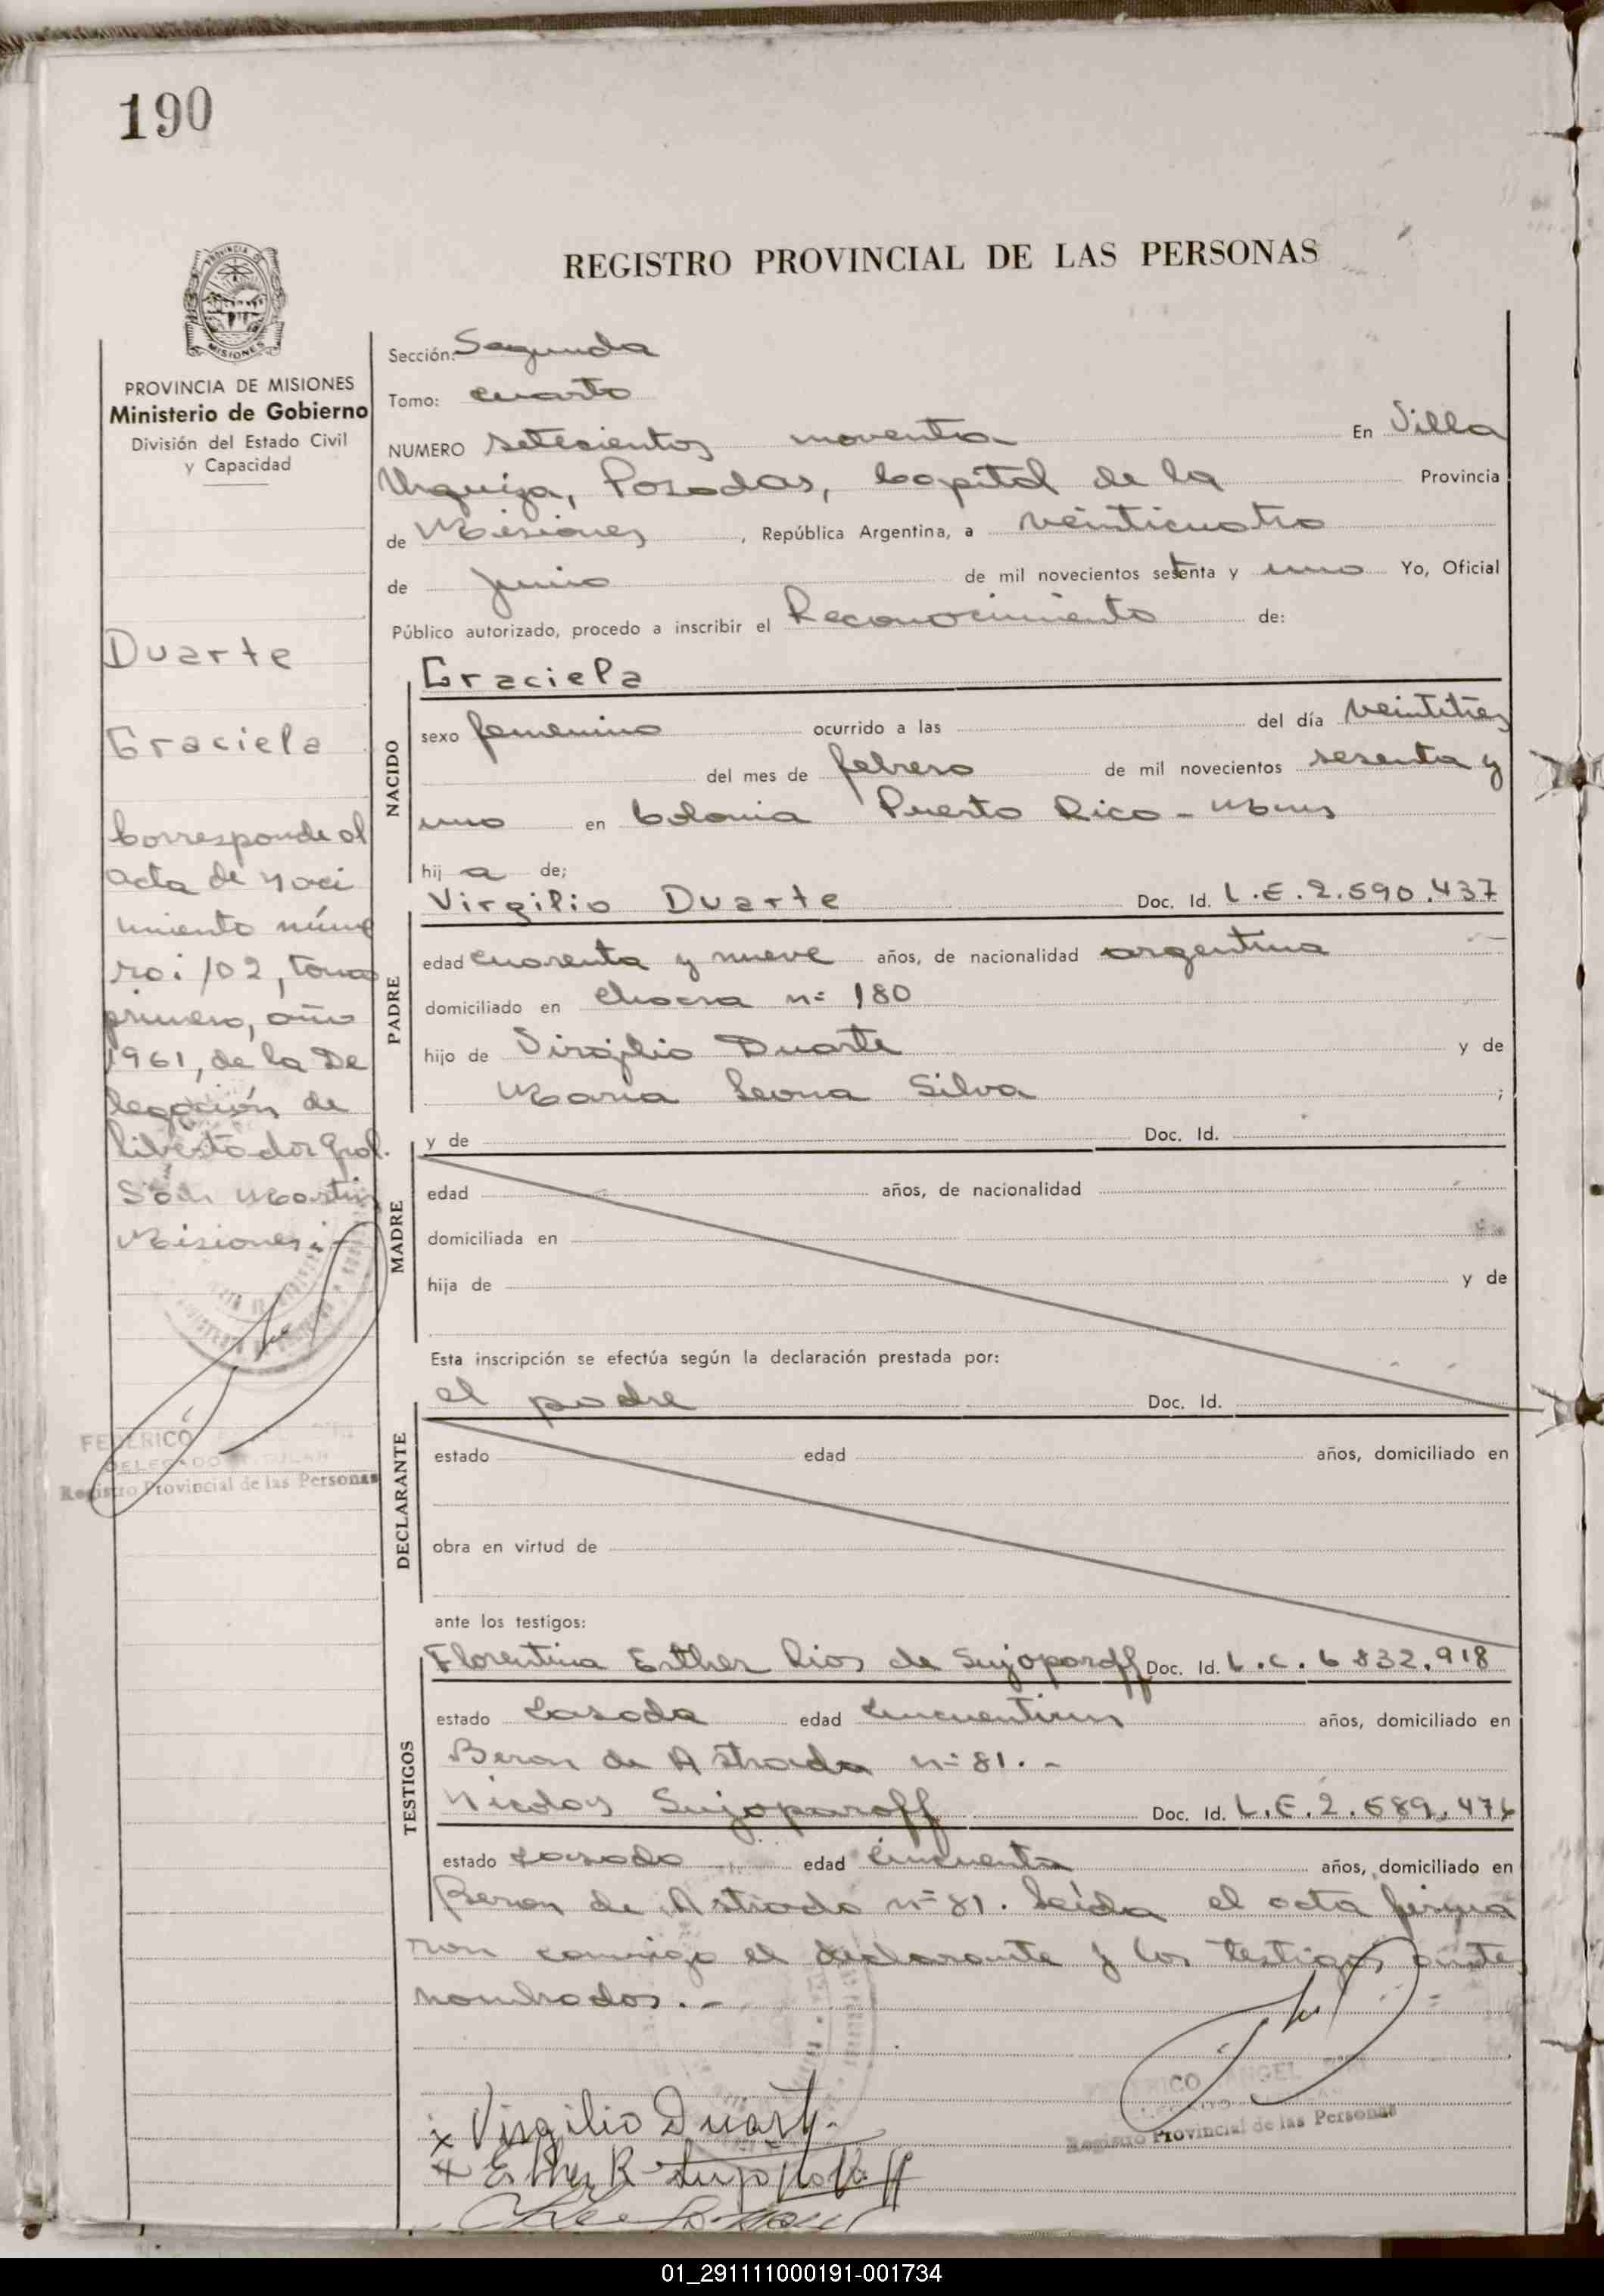 190
REGISTRO PROVINCIAL DE LAS PERSONAS
MISIONES
PROVINCIA DE MISIONES
Ministerio de Gobierno
División del Estado Civil
y Capacidad
Duarte
Graciela
Corresponde al
acta de naci
miento núme
ro: 102, tomo
primero, año
1961, de la De
legación de
Libertador Gral.
San Martín
Misiones:-
FEDERICO
DELEGADO TITULAR
Registro Provincial de las Personas
Sección: Segunda
Tomo: cuarto
NUMERO setecientos noventa En Villa
Urquiza, Posadas, Capital de la Provincia
de Misiones, República Argentina, a veinticuatro
de junio de mil novecientos setenta y uno Yo, Oficial
Público autorizado, procedo a inscribir el Reconocimiento de:
NACIDO
Graciela
sexo femenino ocurrido a las del día veintitres
del mes de febrero de mil novecientos sesenta y
uno en Colonia Puerto Rico - Mnes
hija de;
PADRE
Virgilio Duarte Doc. Id. L.E.2.590.437
edad cuarenta y nueve años, de nacionalidad argentina
domiciliado en chacra n= 180
hijo de Virgilio Duarte y de
Maria Leona Silva ;
MADRE
y de Doc. Id.
edad años, de nacionalidad
domiciliada en
hija de y de
Esta inscripción se efectúa según la declaración prestada por:
DECLARANTE
el padre Doc. Id.
estado edad años, domiciliado en
obra en virtud de
ante los testigos:
TESTIGOS
Florentina Esther Rios de Sujoparoff Doc. Id. L.C. 6 832.918
estado casada edad años, domiciliado en
Beron de Astrada n= 81.-
Nicolas Sujoparoff Doc. Id. L.E.2.589.476
estado casado edad cincuenta años, domiciliado en
Beron de Astrada n= 81. Leída el acta firma
ron conmigo el declarante y los testigos antes
nombrados.-
x Virgilio Duarte
x Esther R
Registro Provincial de las Personas
01_291111000191-001734